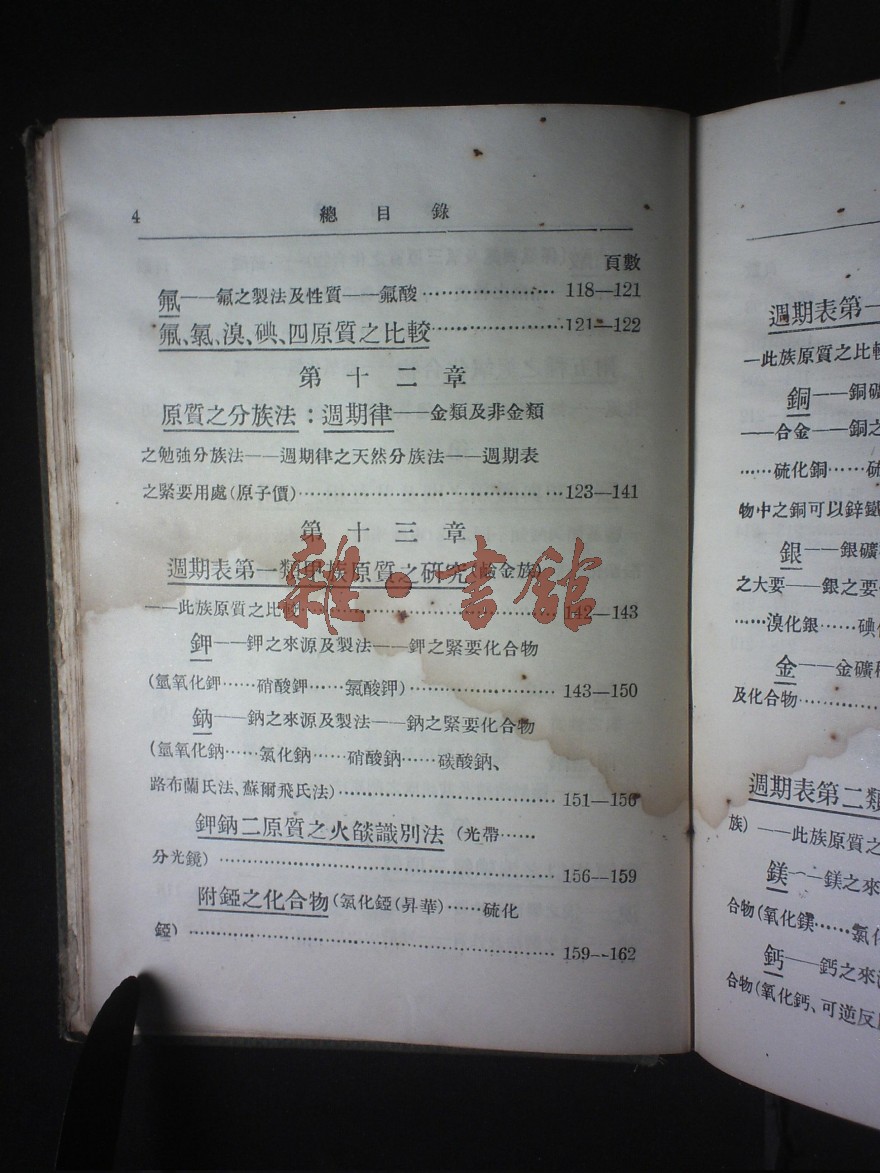 4
總目錄
頁數
氟——氟之製法及性質——氟酸……………… 118—121
氟、氯、溴、碘、四原質之比較………………121—122
第十二章
原質之分族法：週期律——金類及非金類
之勉強分族法——週期律之天然分族法——週期表
之緊要用處(原子價)………………………………123—141
第十三章
週期表第一類甲族原質之研究(鹼金族)
——此族原質之比較………………………………142—143
鉀——鉀之來源及製法——鉀之緊要化合物
(氫氧化鉀……硝酸鉀……氯酸鉀)……………… 143—150
鈉——鈉之來源及製法——鈉之緊要化合物
(氫氧化鈉……氯化鈉……硝酸鈉……碳酸鈉、
路布蘭氏法、蘇爾飛氏法)………………………… 151—156
鉀鈉二原質之火燄識別法(光帶……
分光鏡)……………………………………………… 156—159
附錏之化合物(氯化錏(昇華)……硫化
錏)…………………………………………………… 159—162
雜·書館
週期表第一
—此族原質之比較
銅——銅礦
——合金——銅之
……硫化銅……硫
物中之銅可以鋅鐵
銀——銀礦
之大要——銀之要
……溴化銀……碘
金——金礦
及化合物…………
週期表第二類
族)——此族原質之
鎂——鎂之來
合物(氧化鎂……氯化
鈣——鈣之來
合物(氧化鈣、可逆反